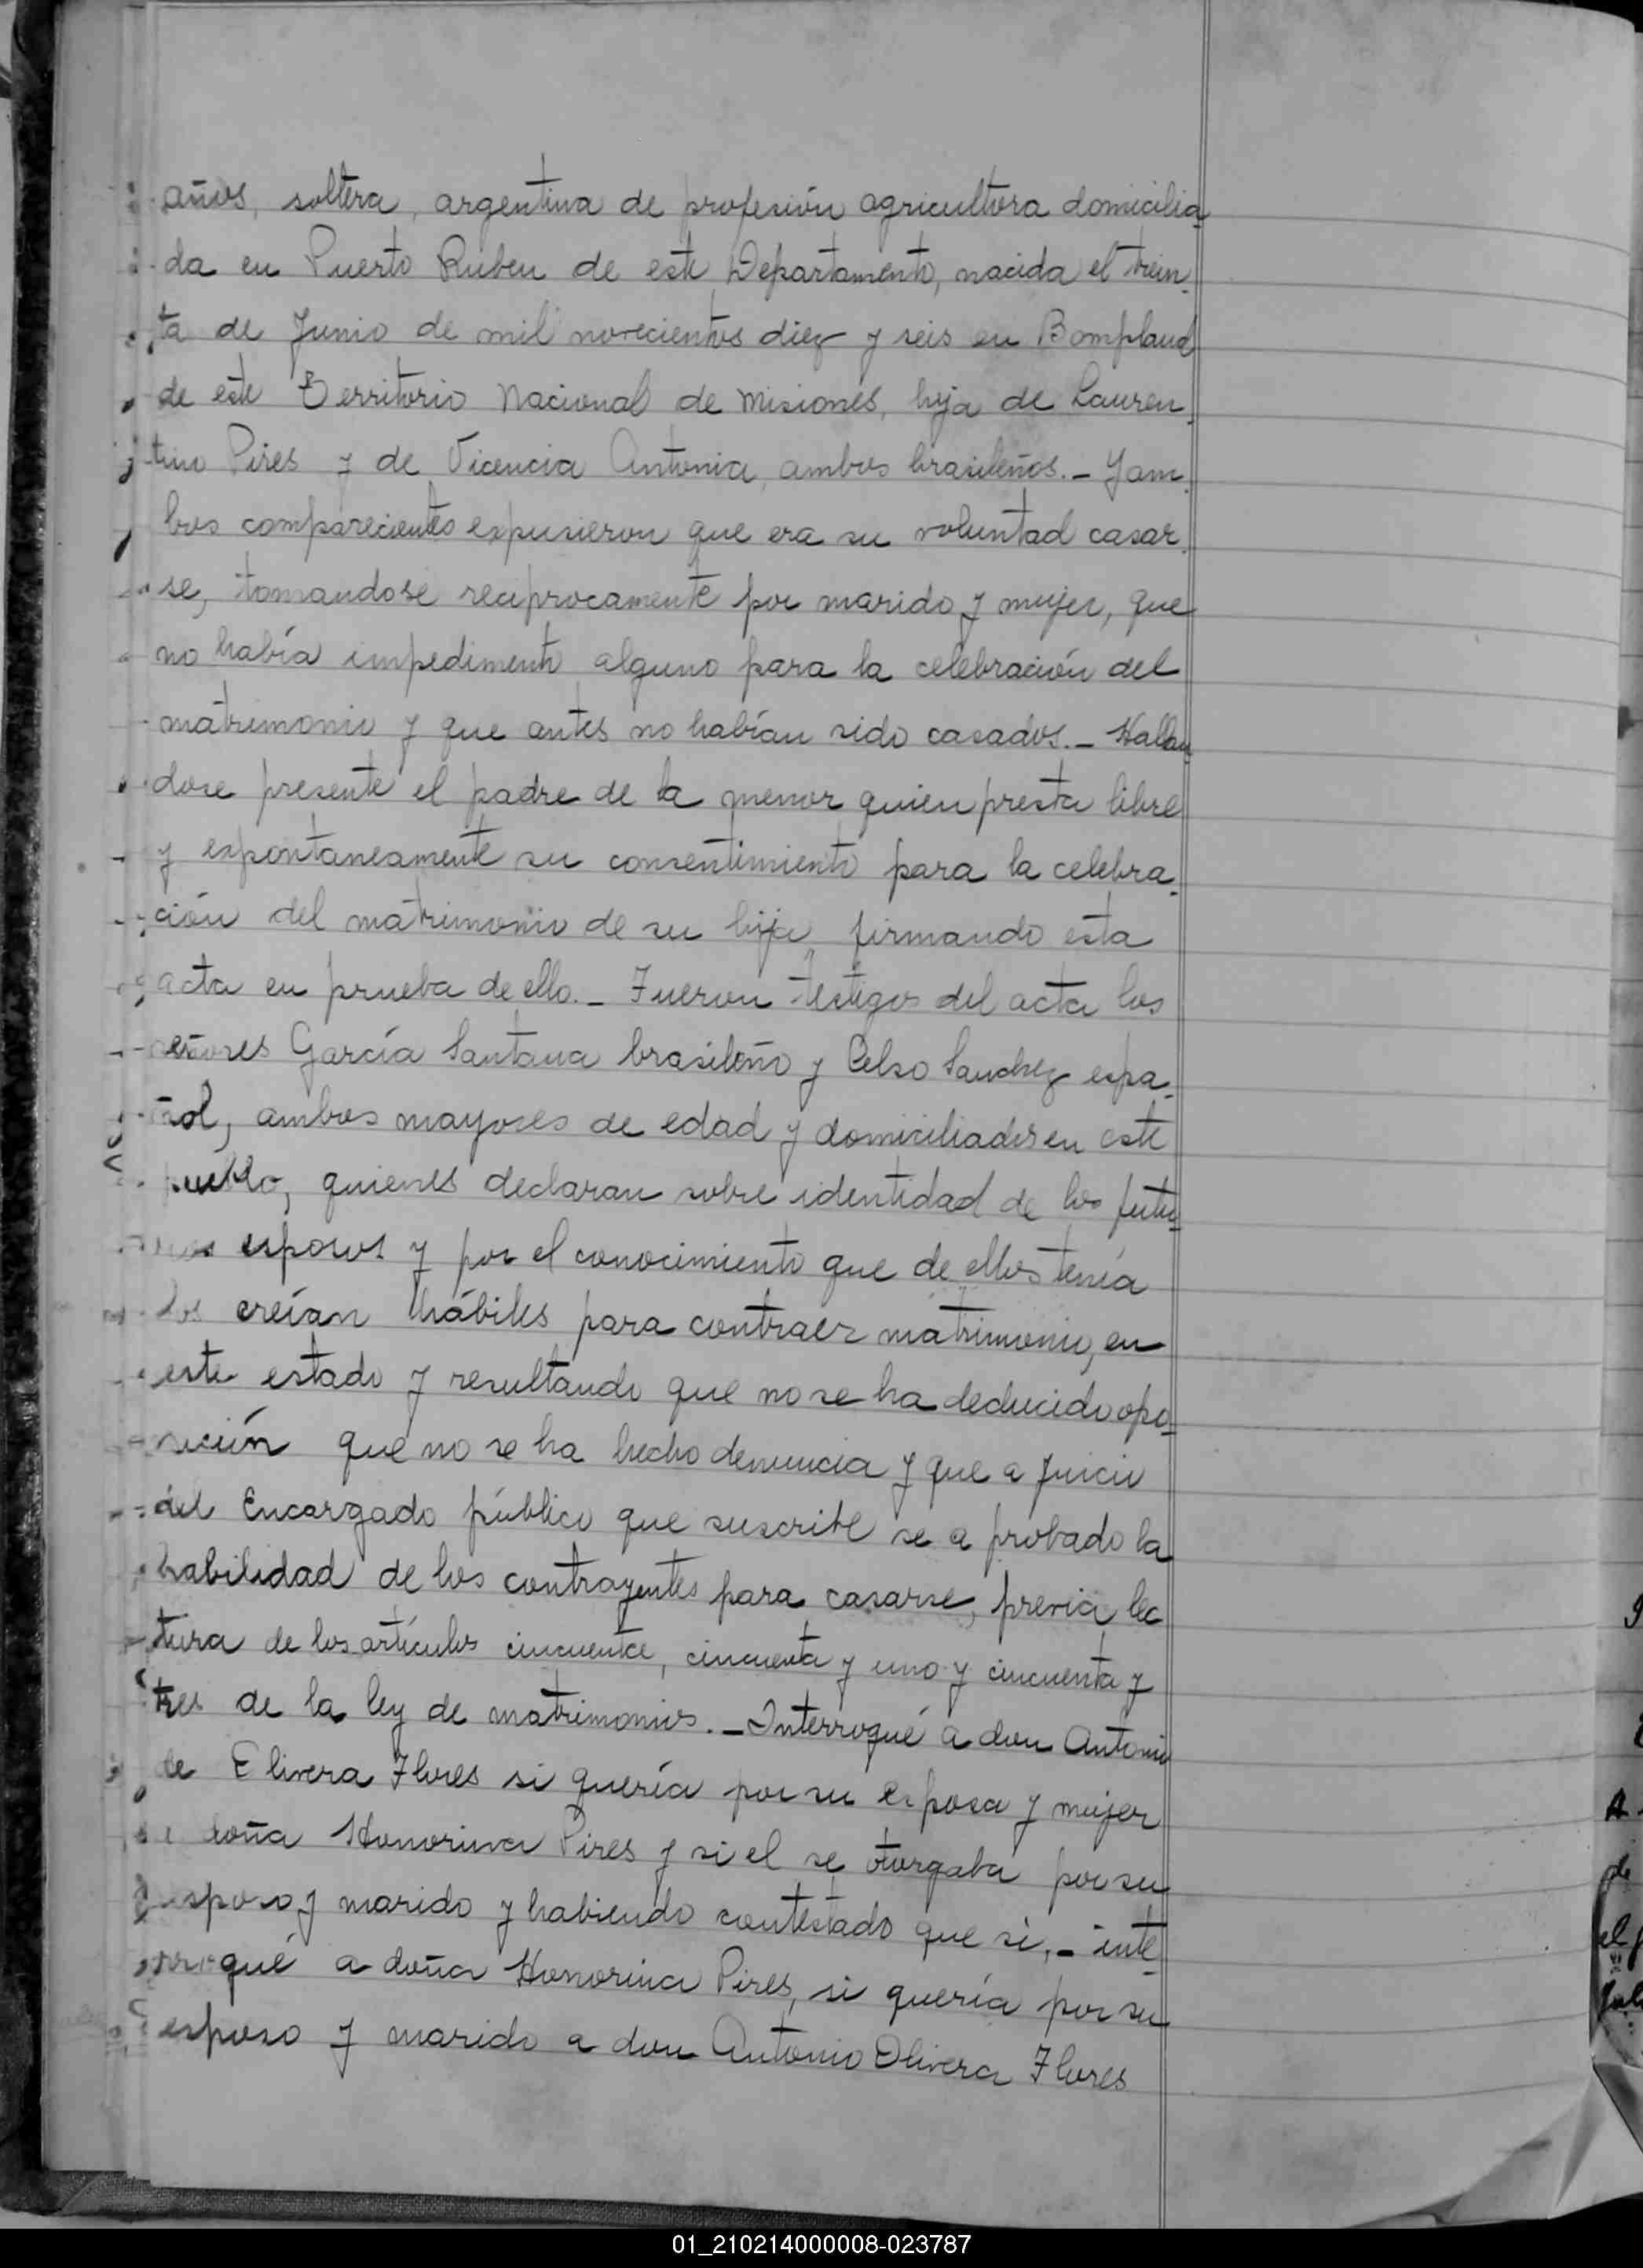 años, soltera, argentina de profesión agricultora domicilia-
da en Puerto Ruben de este Departamento, nacida el trein-
ta de Junio de mil novecientos diez y seis en Bompland
de este Territorio Nacional de Misiones, hija de Lauren-
tino Pires y de Vicencia Antonia, ambos brasileños.- Y am-
bos comparecientes expusieron que era su voluntad casar-
se, tomandose reciprocamente por marido y mujer, que
no había impedimento alguno para la celebración del
matrimonio y que antes no habían sido casados.- Hallan
dose presente el padre de la menor quien presta libre
y expontaneamente su consentimiento para la celebra-
ción del matrimonio de su hija firmando esta
acta en prueba de ello.- Fueron testigos del acta los
señores García Santana brasileño y Celso Sanchez espa-
ñol, ambos mayores de edad y domiciliados en este
pueblo, quienes declaran sobre identidad de los futu-
ros esposos y por el conocimiento que de ellos tenía
los creían hábiles para contraer matrimonio, en
este estado y resultando que no se ha deducido opo-
sición que no se ha hecho denuncia y que a juicio
del Encargado público que suscribe se a probado la
habilidad de los contrayentes para casarse, previa lec
tura de los artículos cincuenta, cincuenta y uno y cincuenta y
tres de la ley de matrimonios.- Interrogué a don Antonio
de Elivera Flores si quería por su esposa y mujer
a doña Honorina Pires y si el se otorgaba por su
esposo y marido y habiendo contestado que si,- inte-
rrogué a doña Honorina Pires, si quería por su
esposo y marido a don Antonio Olivera Flores
01_210214000008-023787